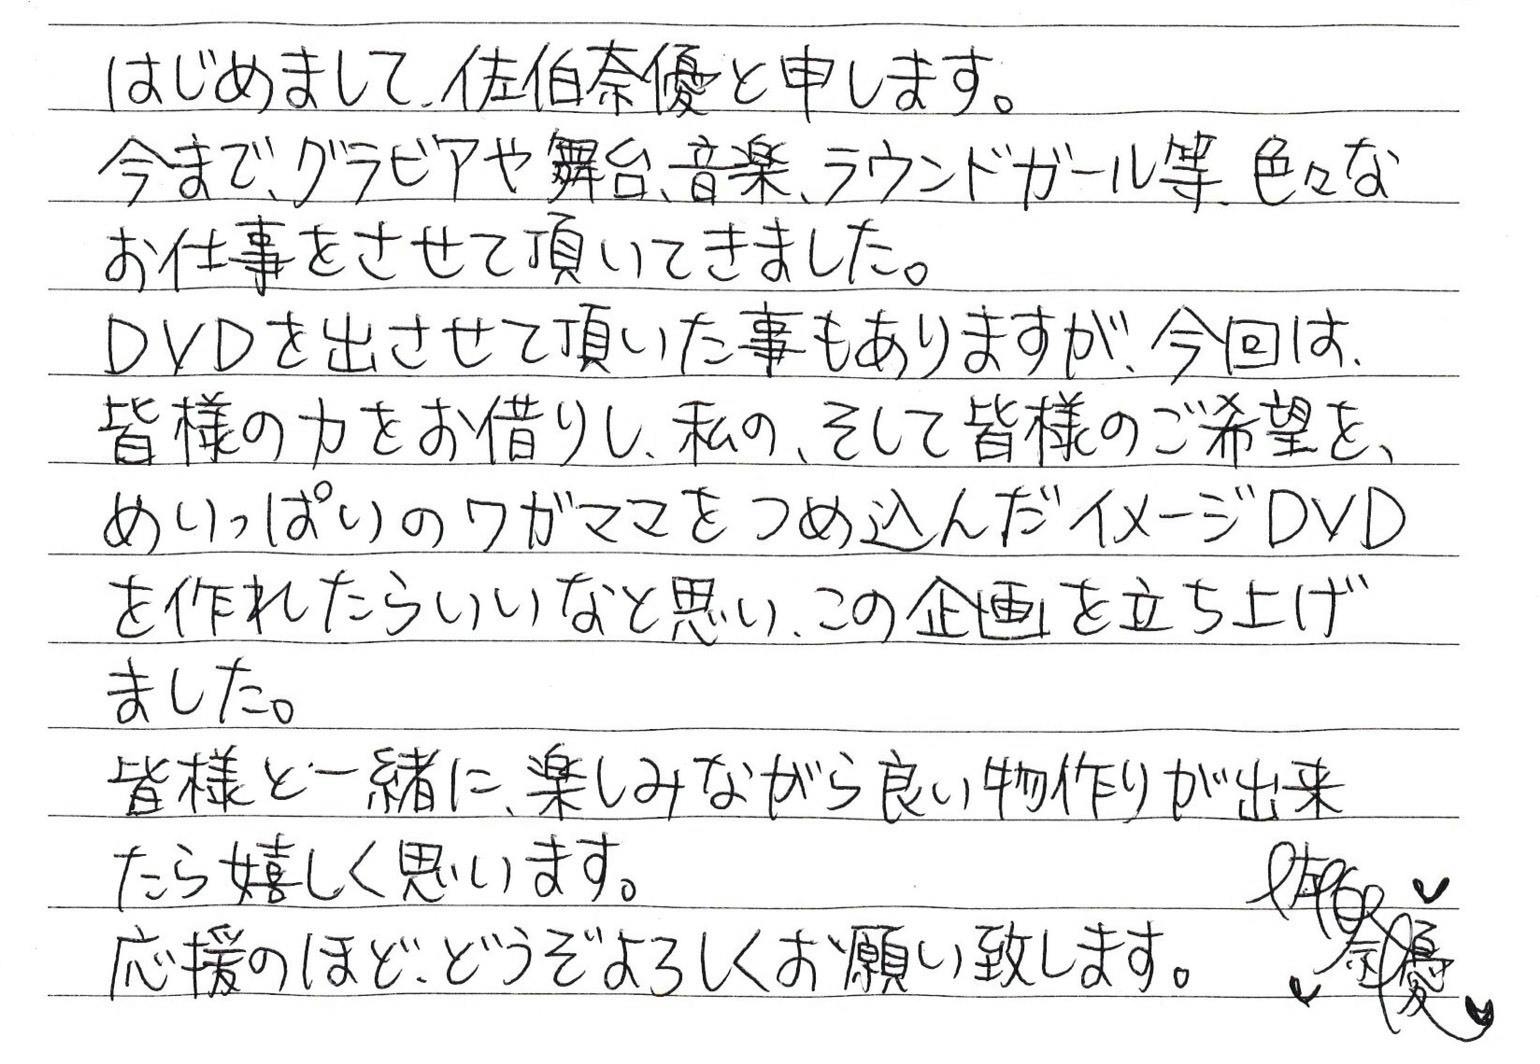 はじめまして、佐伯奈優と申します。
今まで、グラビアや舞台、音楽、ラウンドガール等、色々な
お仕事をさせて頂いてきました。
DVDを出させて頂いた事もありますが、今回は、
皆様の力をお借りし、私の、そして皆様のご希望を、
めいっぱいのワガママをつめ込んだイメージDVD
を作れたらいいなと思い、この企画を立ち上げ
ました。
皆様と一緒に、楽しみながら良い物作りが出来
たら嬉しく思います。
応援のほど、どうぞよろしくお願い致します。
佐伯
奈優